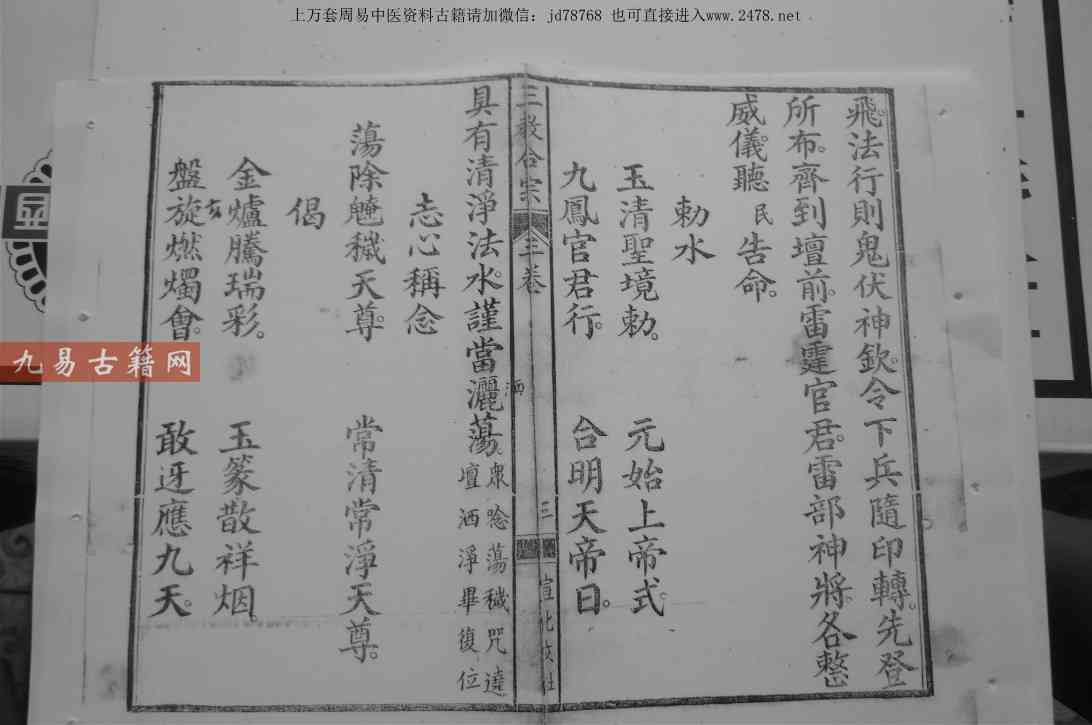 上万套周易中医资料古籍请加微信：jd78768 也可直接进入www.2478.net
飛。法行則鬼伏神欽。令下兵隨印轉。先登
所布。齊到壇前。雷霆官君。雷部神將。各整
威儀。聽民告命。
勅水
玉清聖境勅。 元始上帝式。
九鳳官君行。 台明天帝日。
三教合宗 三卷 三
具有清淨法水。謹當灑蕩。
洒
衆唸蕩穢咒遶
壇洒淨畢復位
志心稱念
蕩除氋穢天尊。 常清常淨天尊。
偈
金爐騰瑞彩。 玉篆散祥烟。
盤旋燃燭會。 敢迓應九天。
九易古籍网